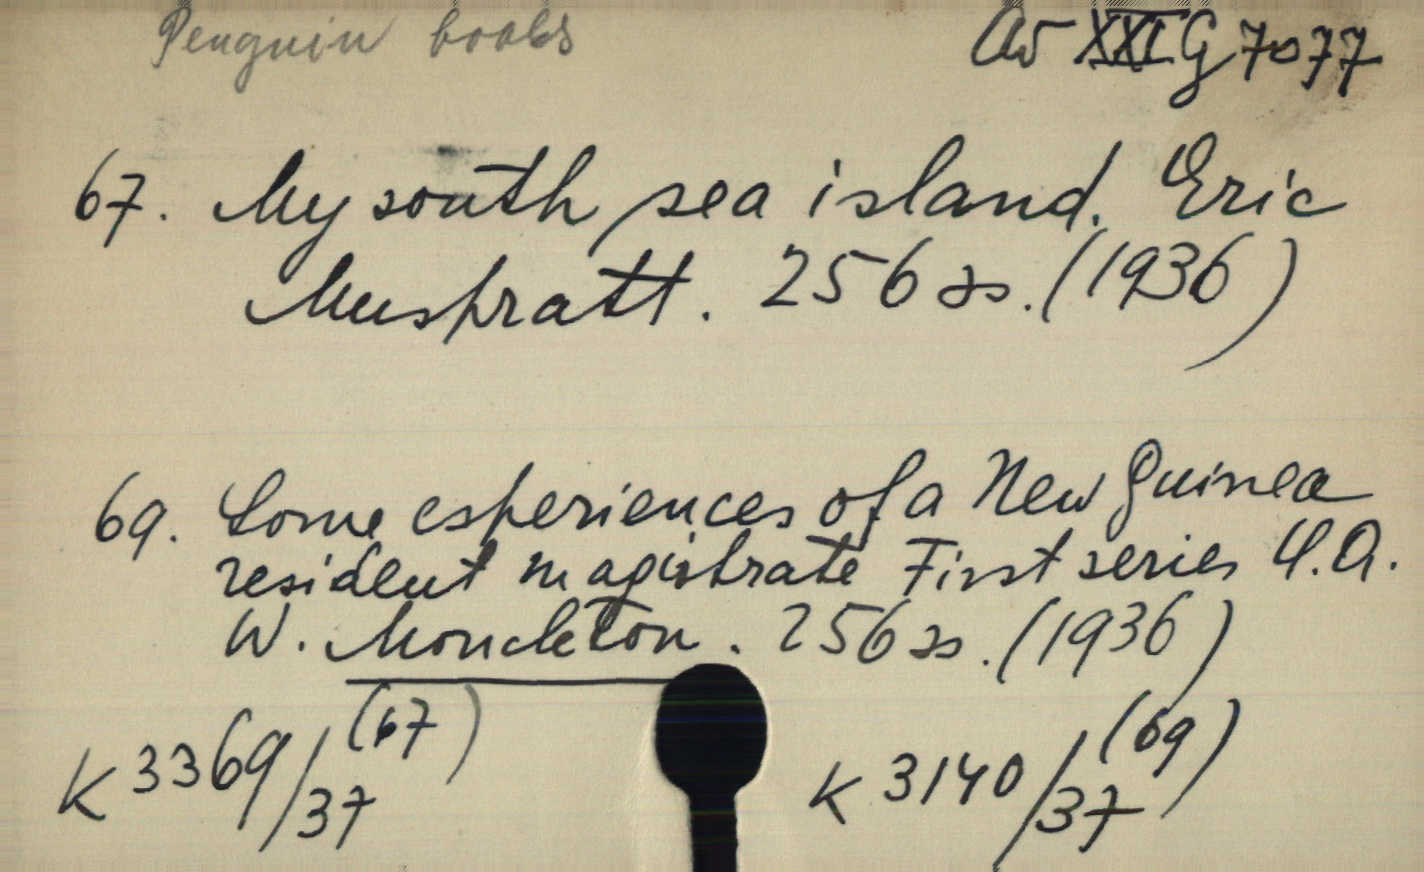 Penguin books
Av XXI G 7077
67. My south sea island. Eric
Muspratt. 256 ss. (1936)
69. Some esperiences of a New Guinea
resident magistrate First series C.A.
W. Monckton. 256 ss. (1936)
K 3369/37 (67)
K 3140/37 (69)